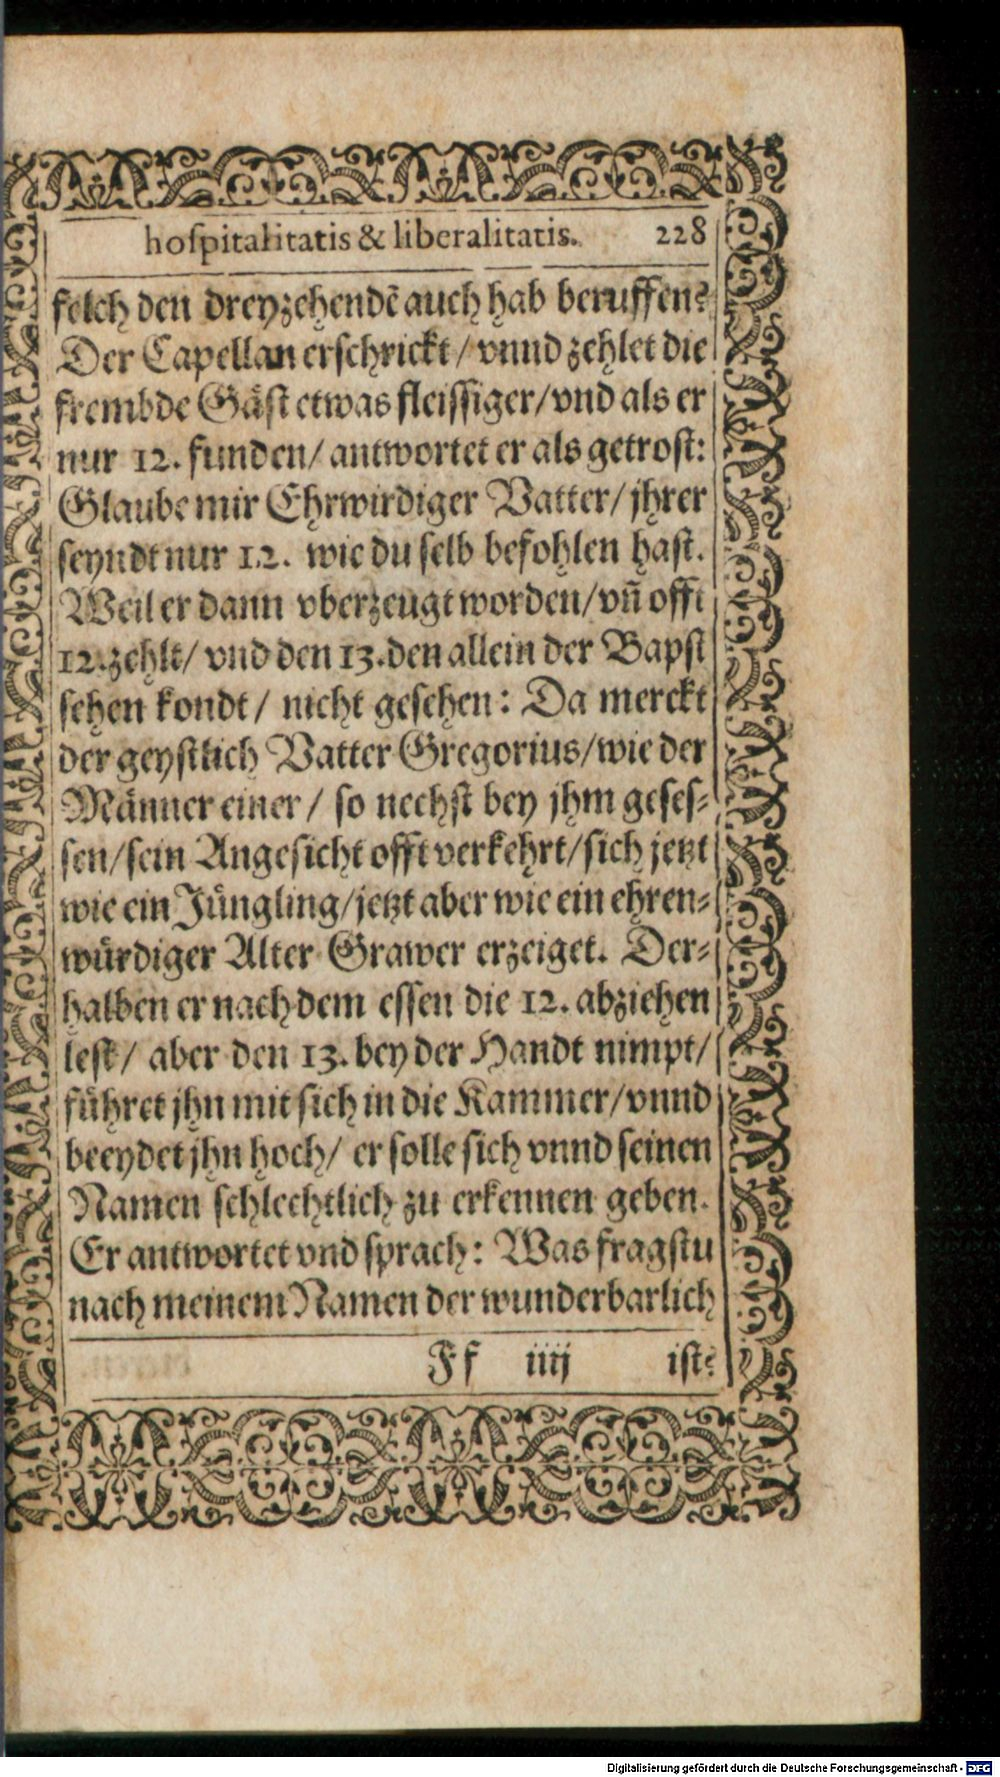 hoſpitalitatis & liberalitatis. 228
felch den dreyzehendẽ auch hab beruffen?
Der Capellan erſchrickt / vnnd zehlet die
frembde Gäſt etwas fleiſſiger/vnd als er
nur 12. funden/ antwortet er als getroſt:
Glaube mir Ehrwirdiger Vatter/ jhrer
ſeyndt nur 12. wie du ſelb befohlen haſt.
Weil er dann vberzeugt worden/vñ offt
12.zehlt/ vnd den 13.den allein der Bapſt
ſehen kondt / nicht geſehen: Da merckt
der geyſtlich Vatter Gregorius/wie der
Männer einer / ſo nechſt bey jhm geſeſ-
ſen/ſein Angeſicht offt verkehrt/ſich jetzt
wie ein Jüngling/jetzt aber wie ein ehren-
würdiger Alter Grawer erzeiget. Der-
halben er nach dem eſſen die 12. abziehen
leſt/ aber den 13. bey der Handt nimpt/
führet jhn mit ſich in die Kammer/vnnd
beeydet jhn hoch/ er ſolle ſich vnnd ſeinen
Namen ſchlechtlich zu erkennen geben.
Er antwortet vnd ſprach: Was fragſtu
nach meinem Namen der wunderbarlich
Ff iiij iſt?
Digitalisierung gefördert durch die Deutsche Forschungsgemeinschaft - DFG